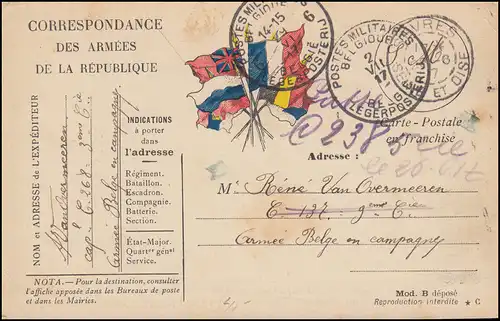 CORRESPONDANCE
DES ARMÉES
DE LA RÉPUBLIQUE
POSTES MILITAIRES
BELGIQUE
14-15
BELGIË
LEGERPOSTERIJ
6
POSTES MILITAIRES
BELGIQUE
2
VII
17
BELGIË
LEGERPOSTERIJ
ET OISE
Carte-Postale
en franchise
C 238 5
le 20.6.17
Adresse :
NOM et ADRESSE de L'EXPÉDITEUR
VanOvermeeren
capl C.268 - 3eme Cie
Armée Belge en campagne
INDICATIONS
à porter
dans
l'adresse
Régiment.
Bataillon.
Escadron.
Compagnie.
Batterie.
Section.
État-Major.
Quartr génl
Service.
Mr Réné Van Overmeeren
C 137. 3eme Cie
Armée Belge en campagne
NOTA. - Pour la destination, consulter
l'affiche apposée dans les Bureaux de poste
et dans les Mairies.
Mod. B déposé
Reproduction interdite ★ C